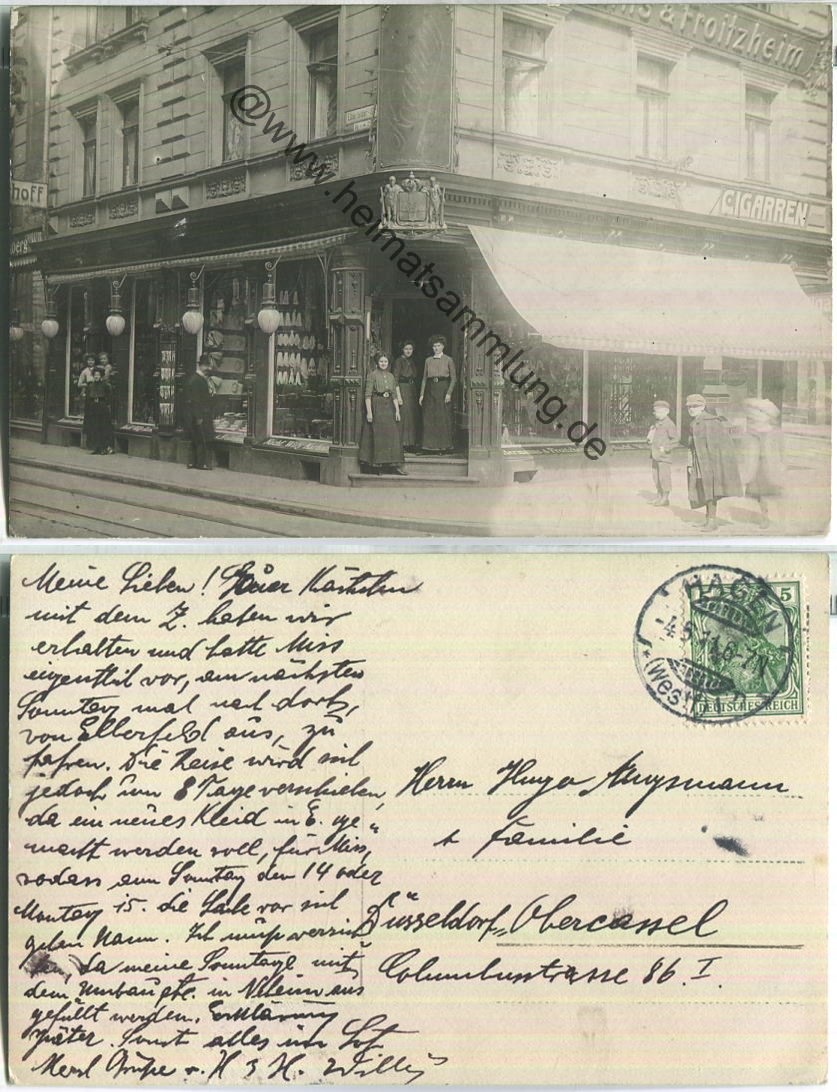 & Froitzheim
CIGARREN
hoff
@www.heimatsammlung.de
Meine Lieben! Euer Kärtchen
mit dem Z. haben wir
erhalten und hatte Miss
eigentlil vor, am nächsten
Sonntag mal nach dort,
von Elberfeld aus, zu
fahren. Die Reise wird sich
jedoch um 8 Tage verschieben,
da ein neues Kleid in E. ge„
macht werden soll, für Miss,
sodass am Sonntag den 14 oder
Montag 15. die Sache vor sich
gehen kann. Ich muß verzich
ten, da meine Sonntage mit
dem Umbau etc. in aus
gefüllt werden. Erklärung
später. Sonst alles im Lot
Herzl Grüße v. H & H. Willy
HAGEN
4.5.11.6-7N
*(Westf.)
5
DEUTSCHES REICH
Herrn Hugo
& Familie
Düsseldorf-Obercassel
Columbusstrasse 86. I.